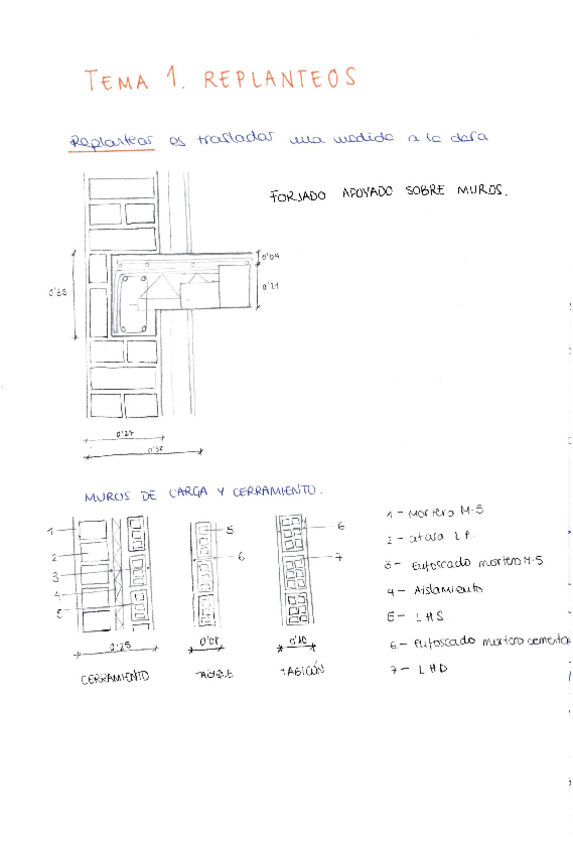 TEMA 1. REPLANTEOS
Replantear es trasladar una medida a la obra
FORJADO APOYADO SOBRE MUROS.
0'04
0'21
0'27
MUROS DE CARGA Y CERRAMIENTO.
1
2
3
4
5
6
5
6
7
0'10
CERRAMIENTO
TABIQUE
TABICÓN
1 - Mortero M-5
2 -
3 - Enfoscado mortero M-5
4 - Aislamiento
5 - LHS
6 - Enfoscado mortero cemento
7 - LHD